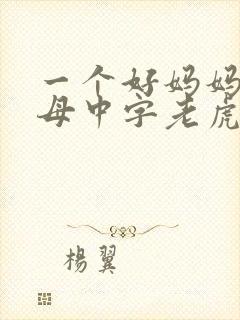 一个好妈妈
母中字老虎
楊翼